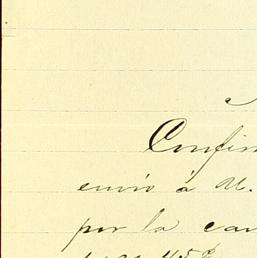 Confir
envio á M.
por la can